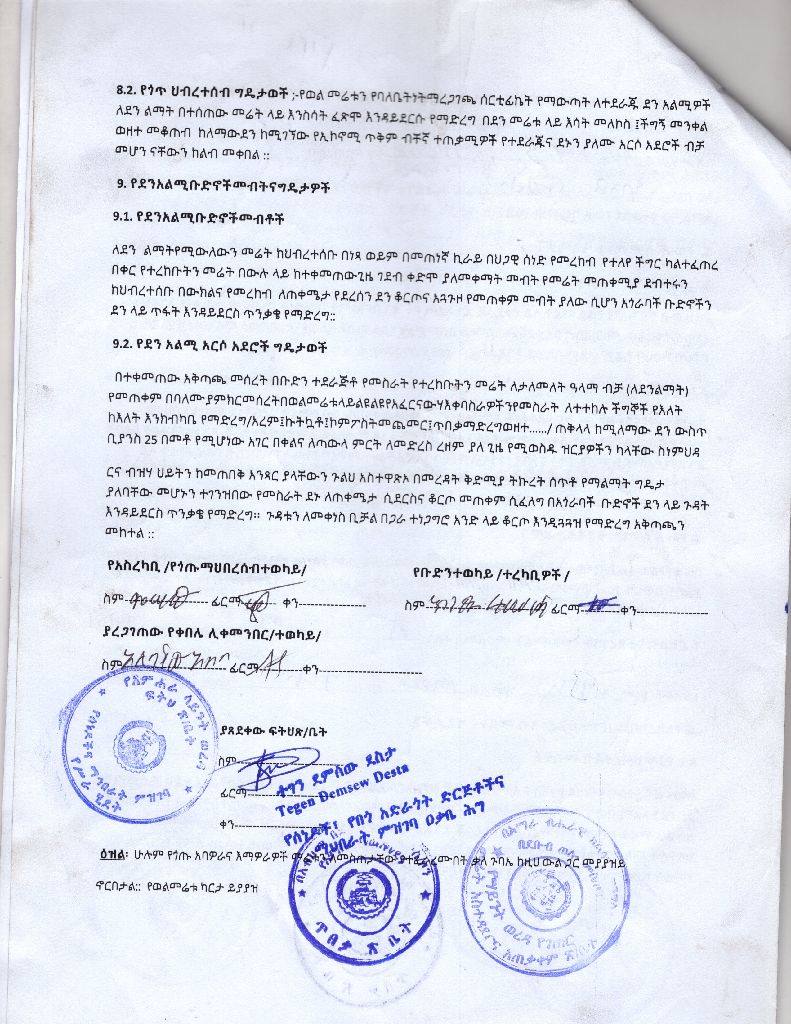 8.2. የጎጥ ህብረተሰብ ግዴታወች ;-የወል መሬቱን የባለቤትነትማረጋገጫ ሰርቲፊኬት የማውጣት ለተደራጁ ደን አልሚዎች
ለደን ልማት በተሰጠው መሬት ላይ እንስሳት ፈጽሞ እንዳይደርሱ የማድረግ በደን መሬቱ ላይ እሳት መለኮስ ፤ችግኝ መንቀል
ወዘተ መቆጠብ ከለማውደን ከሚገኘው የኢኮኖሚ ጥቅም ብቸኛ ተጠቃሚዎች የተደራጁና ደኑን ያለሙ አርሶ አደሮች ብቻ
መሆን ናቸውን ከልብ መቀበል ::
9. የደንአልሚቡድኖችመብትናግዴታዎች
9.1. የደንአልሚቡድኖችመብቶች
ለደን ልማትየሚውለውን መሬት ከህብረተሰቡ በነጻ ወይም በመጠነኛ ኪራይ በህጋዊ ሰነድ የመረከብ የተለየ ችግር ካልተፈጠረ
በቀር የተረከቡትን መሬት በውሉ ላይ ከተቀመጠውጊዜ ገደብ ቀድሞ ያለመቀማት መብት የመሬት መጠቀሚያ ደብተሩን
ከህብረተሰቡ በውክልና የመረከብ ለጠቀሜታ የደረሰን ደን ቆርጦና አጓጉዞ የመጠቀም መብት ያለው ሲሆን አጎራባች ቡድኖችን
ደን ላይ ጥፋት እንዳይደርስ ጥንቃቄ የማድረግ::
9.2. የደን አልሚ አርሶ አደሮች ግዴታወች
በተቀመጠው አቅጣጫ መሰረት በቡድን ተደራጅቶ የመስራት የተረከቡትን መሬት ለታለመለት ዓላማ ብቻ (ለደንልማት)
የመጠቀም በባለሙያምክርመሰረትበወልመሬቱላይልዩልዩየአፈርናውሃእቀባስራዎችንየመስራት ለተተከሉ ችግኞች የእለት
ከእለት እንክብካቤ የማድረግ/አረም፤ኩትኳቶ፤ኮምፖስትመጨመር፤ጥበቃማድረግወዘተ....../ ጠቅላላ ከሚለማው ደን ውስጥ
ቢያንስ 25 በመቶ የሚሆነው አገር በቀልና ለጣውላ ምርት ለመድረስ ረዘም ያለ ጊዜ የሚወስዱ ዝርያዎችን ካላቸው ስነምህዳ
ርና ብዝሃ ህይትን ከመጠበቅ አንጻር ያላቸውን ጉልህ አስተዋጽኦ በመረዳት ቅድሚያ ትኩረት ሰጥቶ የማልማት ግዴታ
ያለባቸው መሆኑን ተገንዝበው የመስራት ደኑ ለጠቀሜታ ሲደርስና ቆርጦ መጠቀም ሲፈልግ በአጎራባች ቡድኖች ደን ላይ ጉዳት
እንዳይደርስ ጥንቃቄ የማድረግ። ጉዳቱን ለመቀነስ ቢቻል በጋራ ተነጋግሮ አንድ ላይ ቆርጦ እንዲጓጓዝ የማድረግ አቅጣጫን
መከተል ::
የአስረካቢ /የጎጡማህበረሰብተወካይ/ የቡድንተወካይ /ተረካቢዎች /
ስም ፊርማ ቀን ስም ፊርማ ቀን
ያረጋገጠው የቀበሌ ሊቀመንበር/ተወካይ/
ስም ፊርማ ቀን
ያጸደቀው ፍትህጽ/ቤት
ስም
ፊርማ
ቀን
ተገን ደምሰው ደስታ
Tegen Demsew Desta
የሰነዶች፣ የበጎ አድራጎት ድርጅቶችና
ማህበራት ምዝገባ ዐቃቤ ሕግ
የአምሐራ ሳይንት ወረዳ
ፍትህ ጽ/ቤት
ዕዝል: ሁሉም የጎጡ አባዎራና እማዎራዎች ቃለ ጉባኤ ከዚህ ውል ጋር መያያዝይ
ኖርበታል:: የወልመሬቱ ካርታ ይያያዝ
ጥበቃ ጽ ቤት